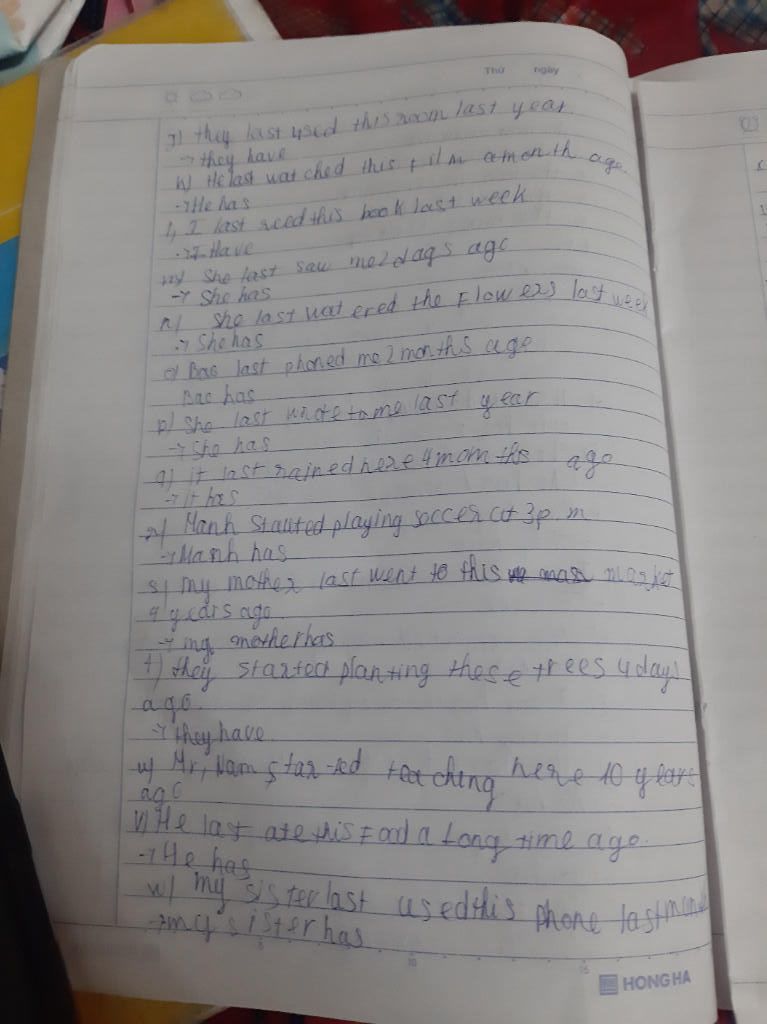 Thứ ngày
g) they last used this room last year
→ they have
h) He last watched this film a month ago
→ He has
I, I last reed this book last week
→ I Have
m) She last saw me 2 days ago
→ She has
n) She last watered the Flowers last week
→ She has
o) Bac last phoned me 2 months ago
Bac has
p) She last wrote to me last year
→ She has
q) it last rained here 4 momths ago
→ it has
r) Manh Started playing soccer at 3p.m
→ Manh has
s) my mother last went to this market
years ago
→ my mother has
t) they started planting these trees 4 days
ago.
→ they have
u) Mr, Nam started teaching here 10 years
ago
v) He last ate this Food a Long time ago.
→ He has
w) my sister last used this phone last
→ my sister has
5 10 15
HONG HA